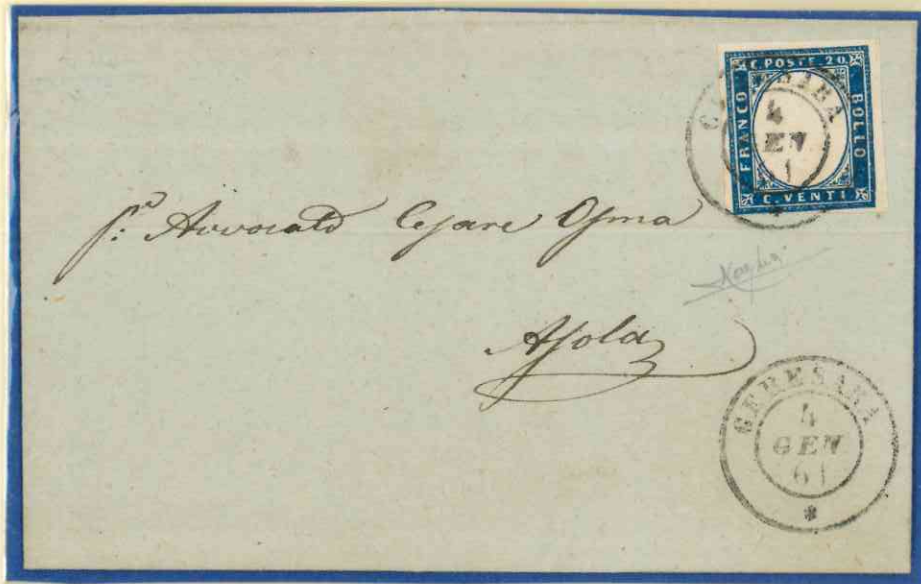 C. POSTE. 20.
FRANCO
BOLLO
C. VENTI
4
Avvocato Cesare Osma
Asola
CERESARA
4
GEN
61
*